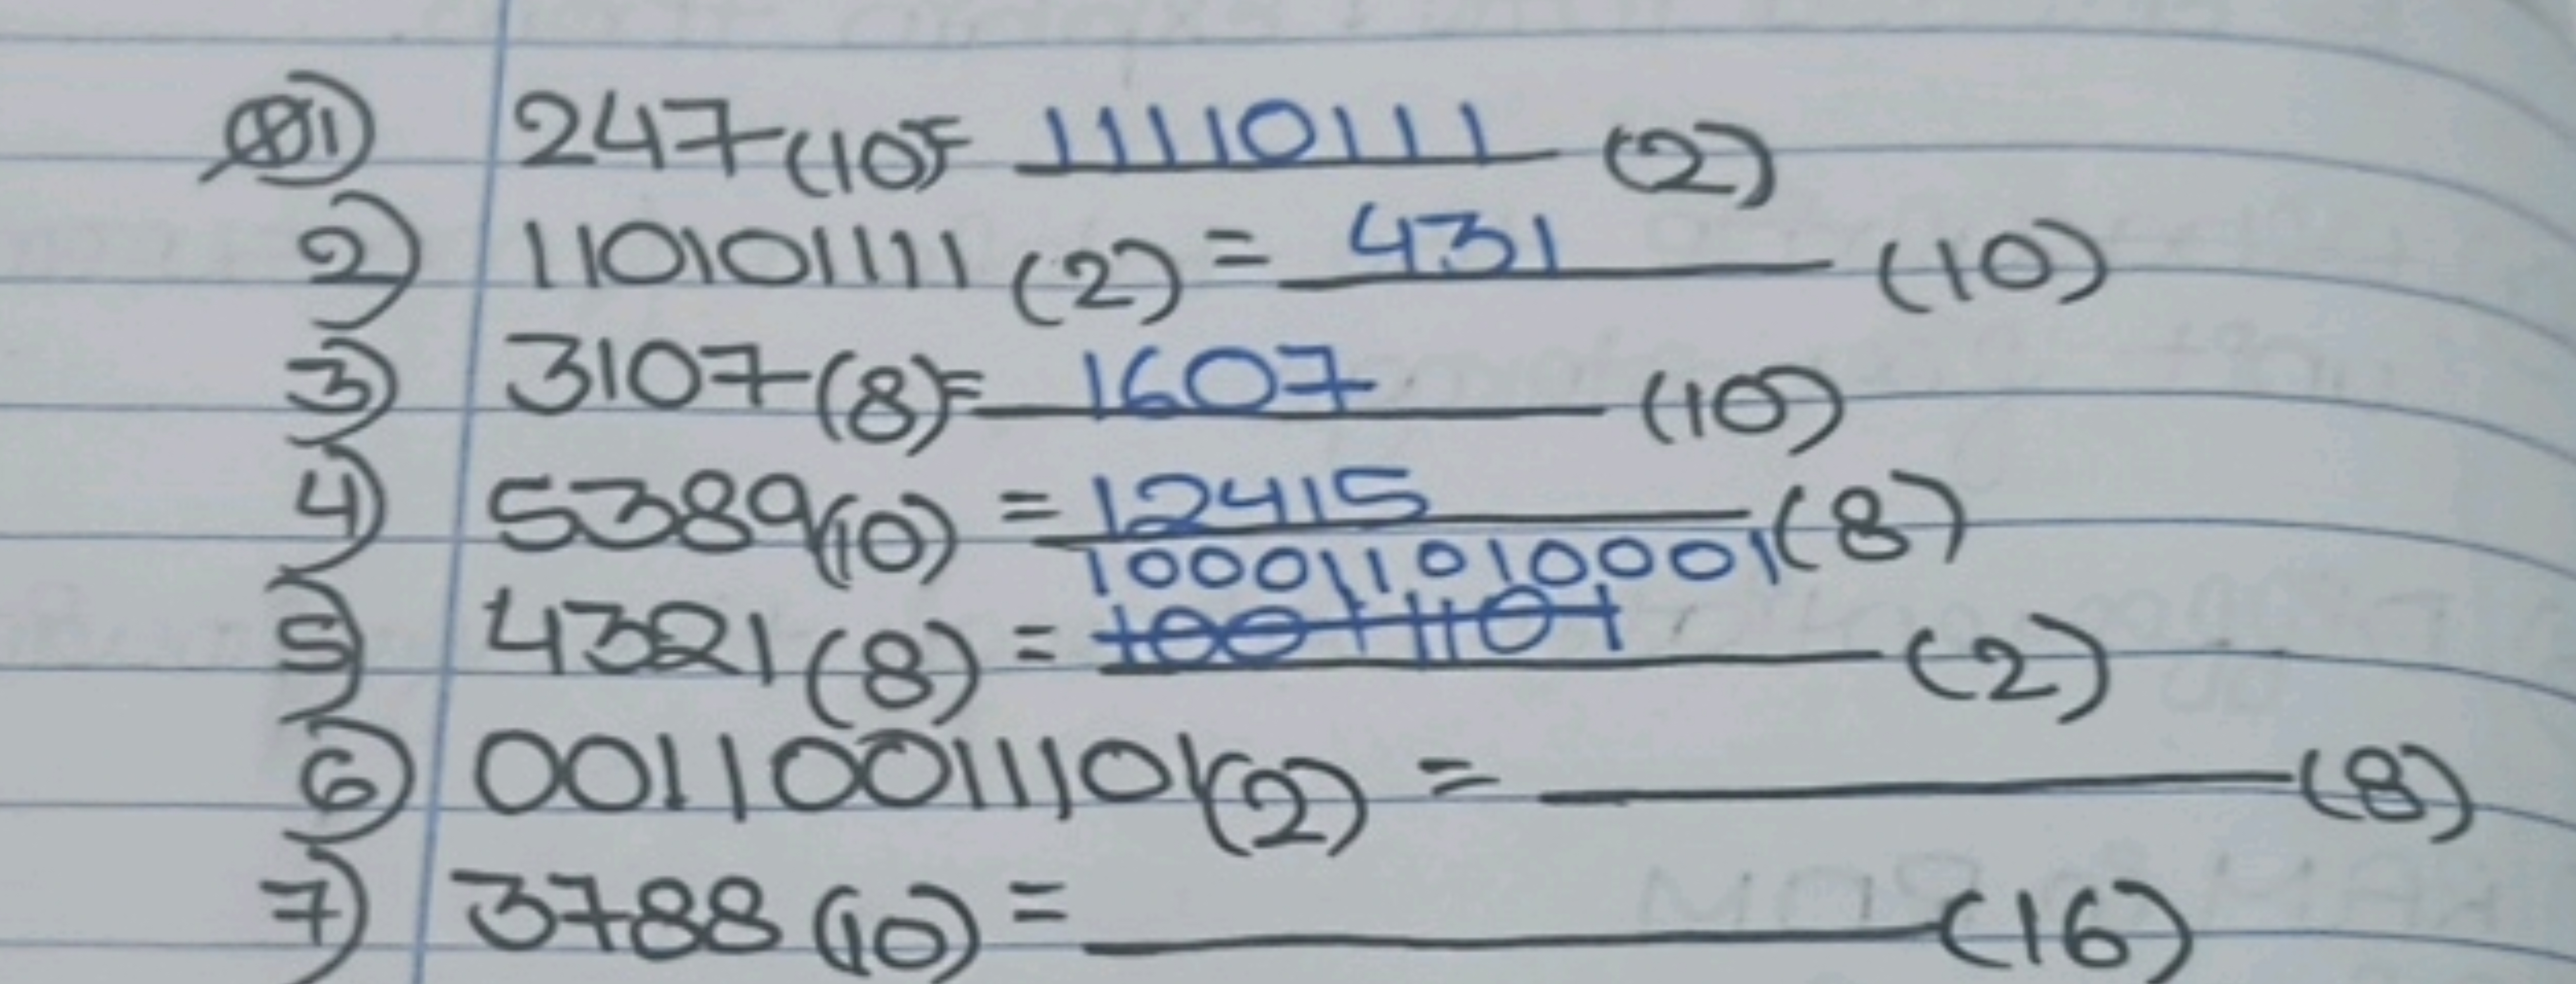 Q1) 247(10)= 11110111 (2)
2) 110101111 (2) = 431 (10)
3) 3107(8)= 1607 (10)
4) 5389(10) = 12415 (8)
1000110010001
5) 4321(8) = 10011101 (2)
6) 001100111101(2) = (8)
7) 3788(10) = (16)